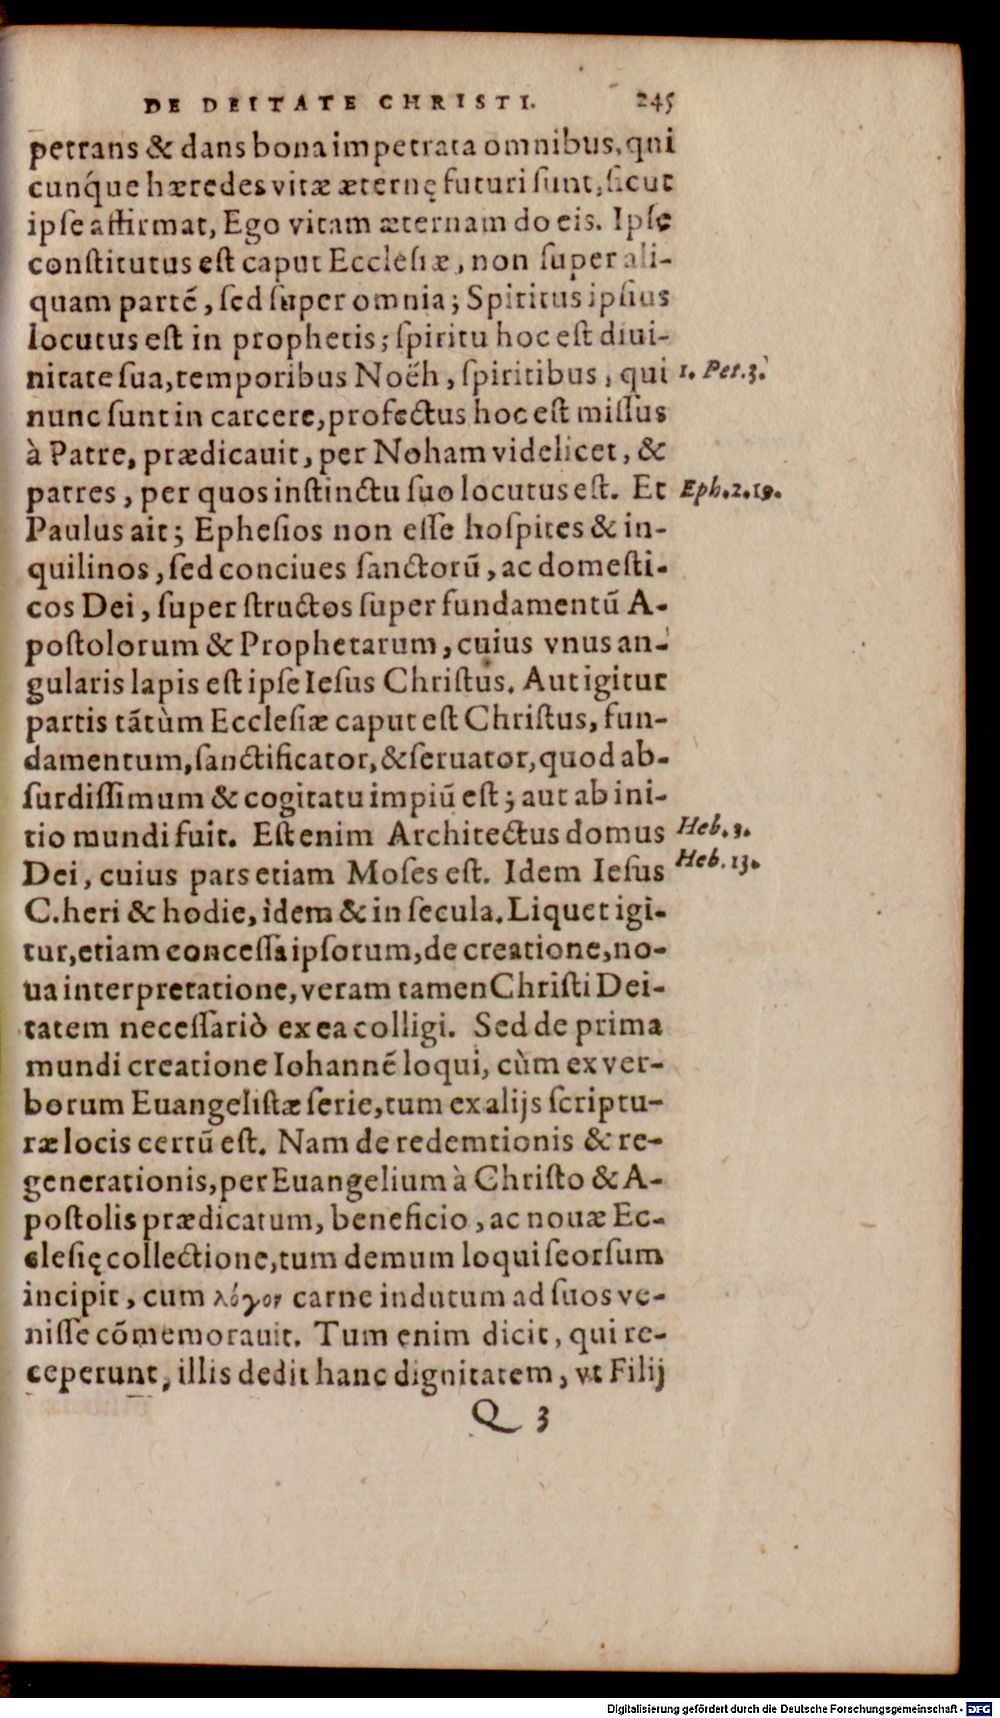 DE DEITATE CHRISTI. 245
petrans & dans bona impetrata omnibus, qui
cunq́ue hæredes vitæ æternę futuri sunt, sicut
ipse affirmat, Ego vitam æternam do eis. Ipse
constitutus est caput Ecclesiæ, non super ali-
quam partē, sed super omnia; Spiritus ipsius
locutus est in prophetis; spiritu hoc est diui-
nitate sua, temporibus Noëh, spiritibus, qui
1. Pet. 3.
nunc sunt in carcere, profectus hoc est missus
à Patre, prædicauit, per Noham videlicet, &
patres, per quos instinctu suo locutus est. Et
Eph. 2. 19.
Paulus ait; Ephesios non esse hospites & in-
quilinos, sed conciues sanctorū, ac domesti-
cos Dei, super structos super fundamentū A-
postolorum & Prophetarum, cuius vnus an-
gularis lapis est ipse Iesus Christus. Aut igitur
partis tātùm Ecclesiæ caput est Christus, fun-
damentum, sanctificator, & seruator, quod ab-
surdissimum & cogitatu impiū est; aut ab ini-
tio mundi fuit. Est enim Architectus domus
Heb. 3.
Dei, cuius pars etiam Moses est. Idem Iesus
Heb. 13.
C. heri & hodie, idem & in secula. Liquet igi-
tur, etiam concessa ipsorum, de creatione, no-
ua interpretatione, veram tamen Christi Dei-
tatem necessariò ex ea colligi. Sed de prima
mundi creatione Iohannē loqui, cùm ex ver-
borum Euangelistæ serie, tum ex alijs scriptu-
ræ locis certū est. Nam de redemtionis & re-
generationis, per Euangelium à Christo & A-
postolis prædicatum, beneficio, ac nouæ Ec-
clesię collectione, tum demum loqui seorsum
incipit, cum λόγον carne indutum ad suos ve-
nisse cōmemorauit. Tum enim dicit, qui re-
ceperunt, illis dedit hanc dignitatem, vt Filij
Q 3
Digitalisierung gefördert durch die Deutsche Forschungsgemeinschaft - DFG